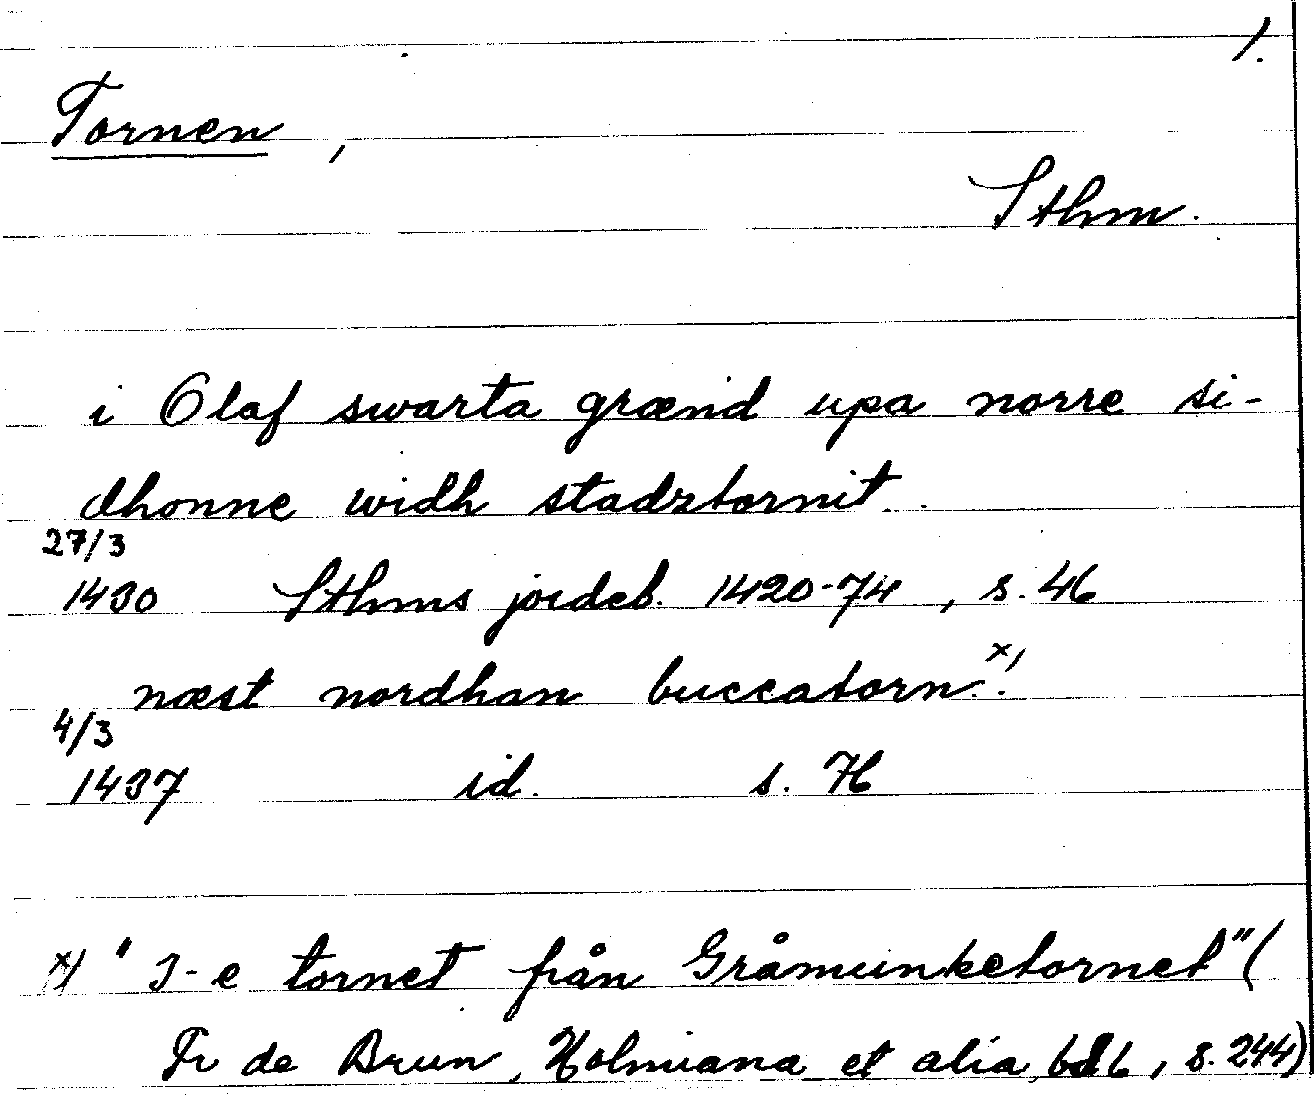 1.
Tornen,
Sthm.
i Olaf swarta grænd upa norre si-
dhonne widh stadztornit.
27/3
1430 Sthms jordeb. 1420-74, s. 46
næst nordhan buccatorn.x)
4/3
1437 id. s. 76
x) "3-e tornet från Gråmunketornet" (
Fr de Brun, Holmiana et alia, bd 6, s. 244)